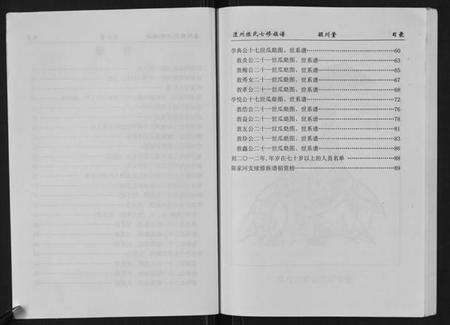 学典公十七世瓜瓞图、世系谱 60
敦炎公二十一世瓜瓞图、世系谱 63
敦梅公二十一世瓜瓞图、世系谱 65
敦秀女二十一世瓜瓞图、世系谱 67
敦革公二十一世瓜瓞图、世系谱 68
学悦公十七世瓜瓞图、世系谱 72
敦浩公二十一世瓜瓞图、世系谱 76
敦益公二十一世瓜瓞图、世系谱 78
敦友公二十一世瓜瓞图、世系谱 81
敦珍公二十一世瓜瓞图、世系谱 83
敦鑫公二十一世瓜瓞图、世系谱 86
到二〇一二年,年岁在七十岁以上的人员名单 88
陈家河支续修族谱捐资榜 89